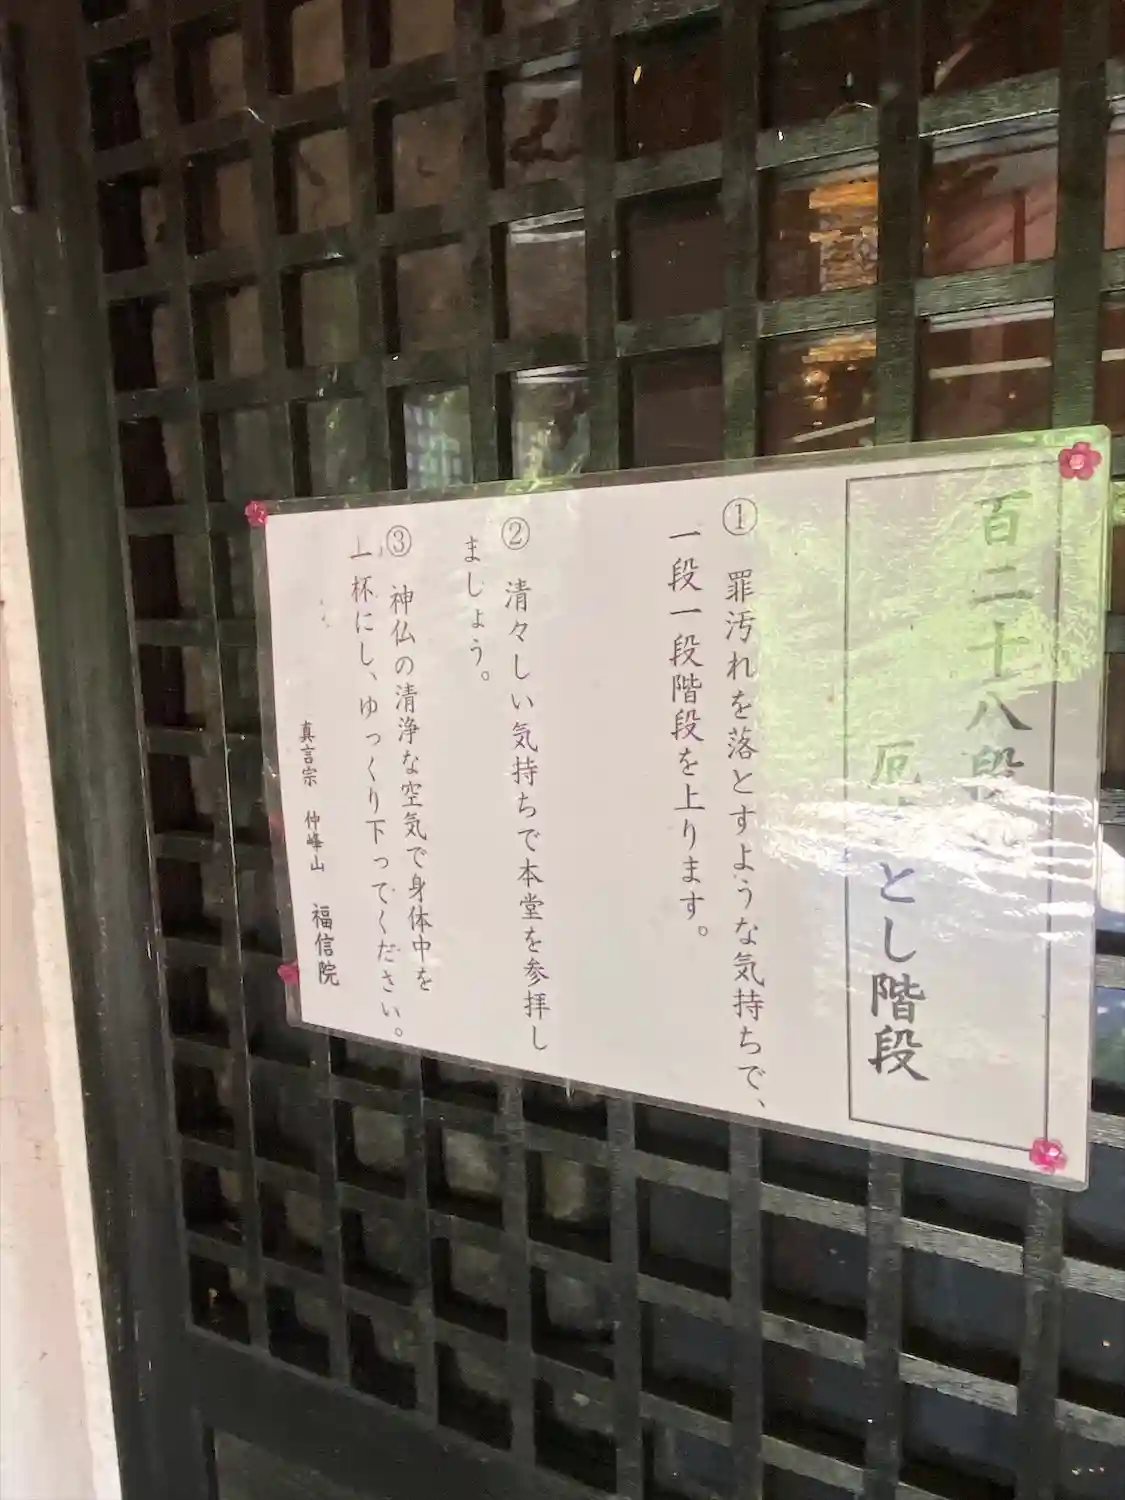 百二十八段
厄落とし階段
① 罪汚れを落とすような気持ちで、
一段一段階段を上ります。
② 清々しい気持ちで本堂を参拝し
ましょう。
③ 神仏の清浄な空気で身体中を
一杯にし、ゆっくり下ってください。
真言宗 仲峰山 福信院